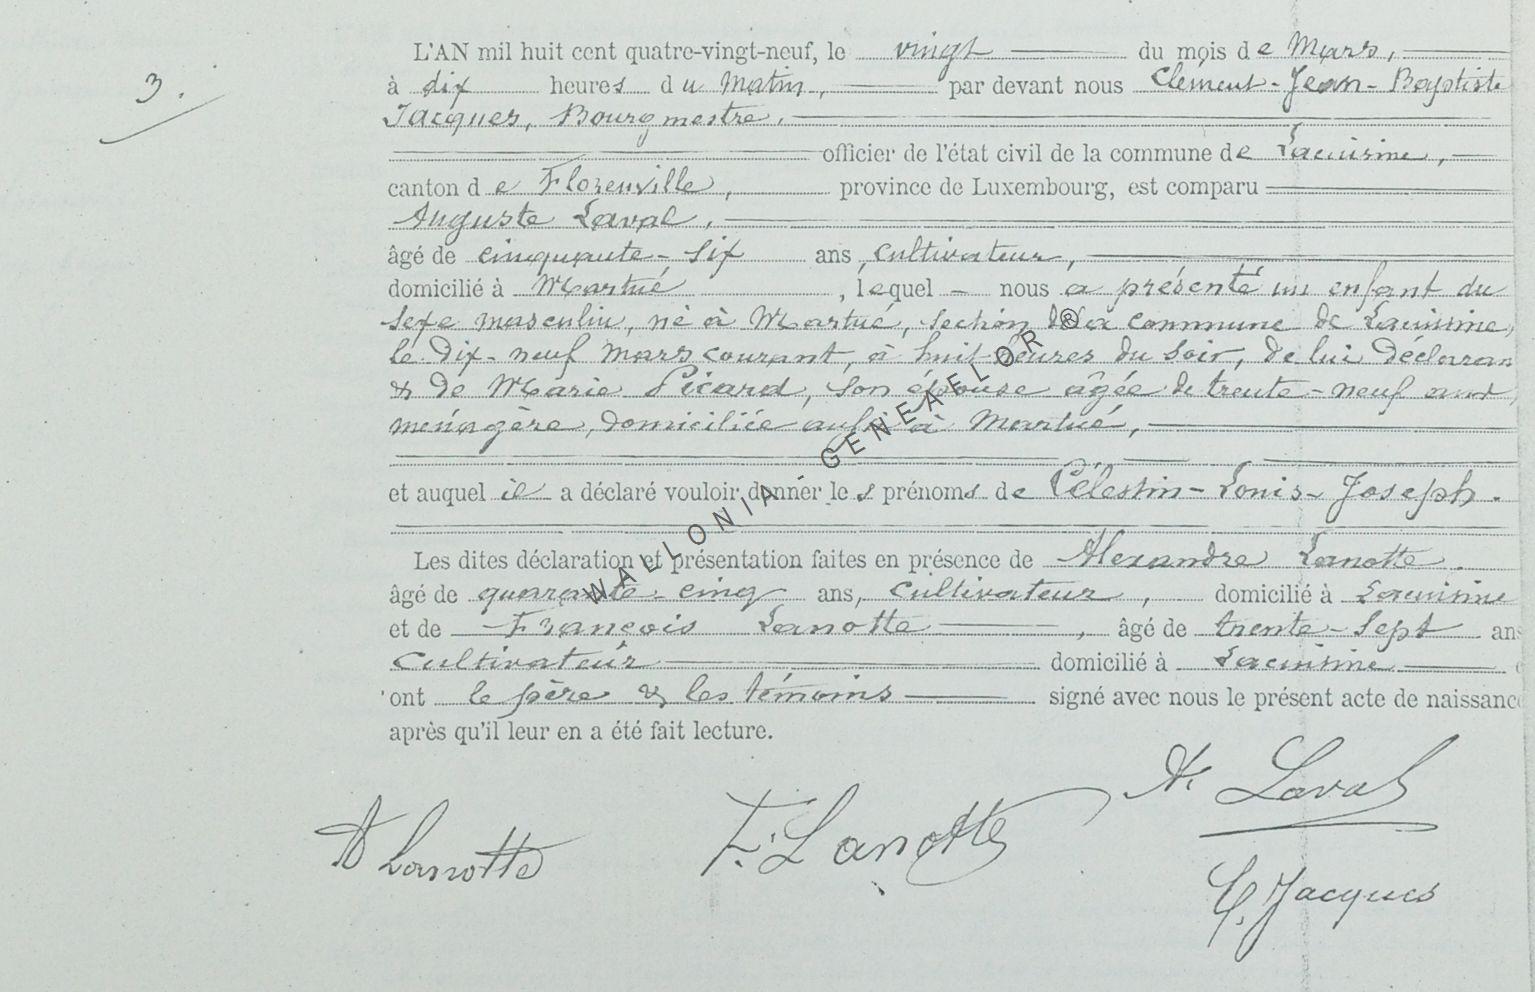 3.
L'AN mil huit cent quatre-vingt-neuf, le vingt du mois de Mars,
à dix heures du matin, par devant nous Clément-Jean-Baptiste
Jacques, Bourgmestre,
officier de l'état civil de la commune de Lacuisine,
canton de Florenville, province de Luxembourg, est comparu
Auguste Laval,
âgé de cinquante-six ans, cultivateur,
domicilié à Martué, lequel nous a présenté un enfant du
sexe masculin, né à Martué, section de la commune de Lacuisine,
le dix-neuf mars courant, à huit heures du soir, de lui déclaran
& de Marie Picard, son épouse âgée de trente-neuf ans,
ménagère, domiciliée aussi à Martué,
et auquel il a déclaré vouloir donner les prénoms de Célestin-Louis-Joseph.
Les dites déclaration et présentation faites en présence de Alexandre Lanotte.
âgé de quarante-cinq ans, cultivateur, domicilié à Lacuisine
et de François Lanotte, âgé de trente-sept ans
cultivateur domicilié à Lacuisine
ont le père & les témoins signé avec nous le présent acte de naissance
après qu'il leur en a été fait lecture.
A Lanotte F. Lanotte A. Laval
C. Jacques
WALLONIA - GENEAELOR ®